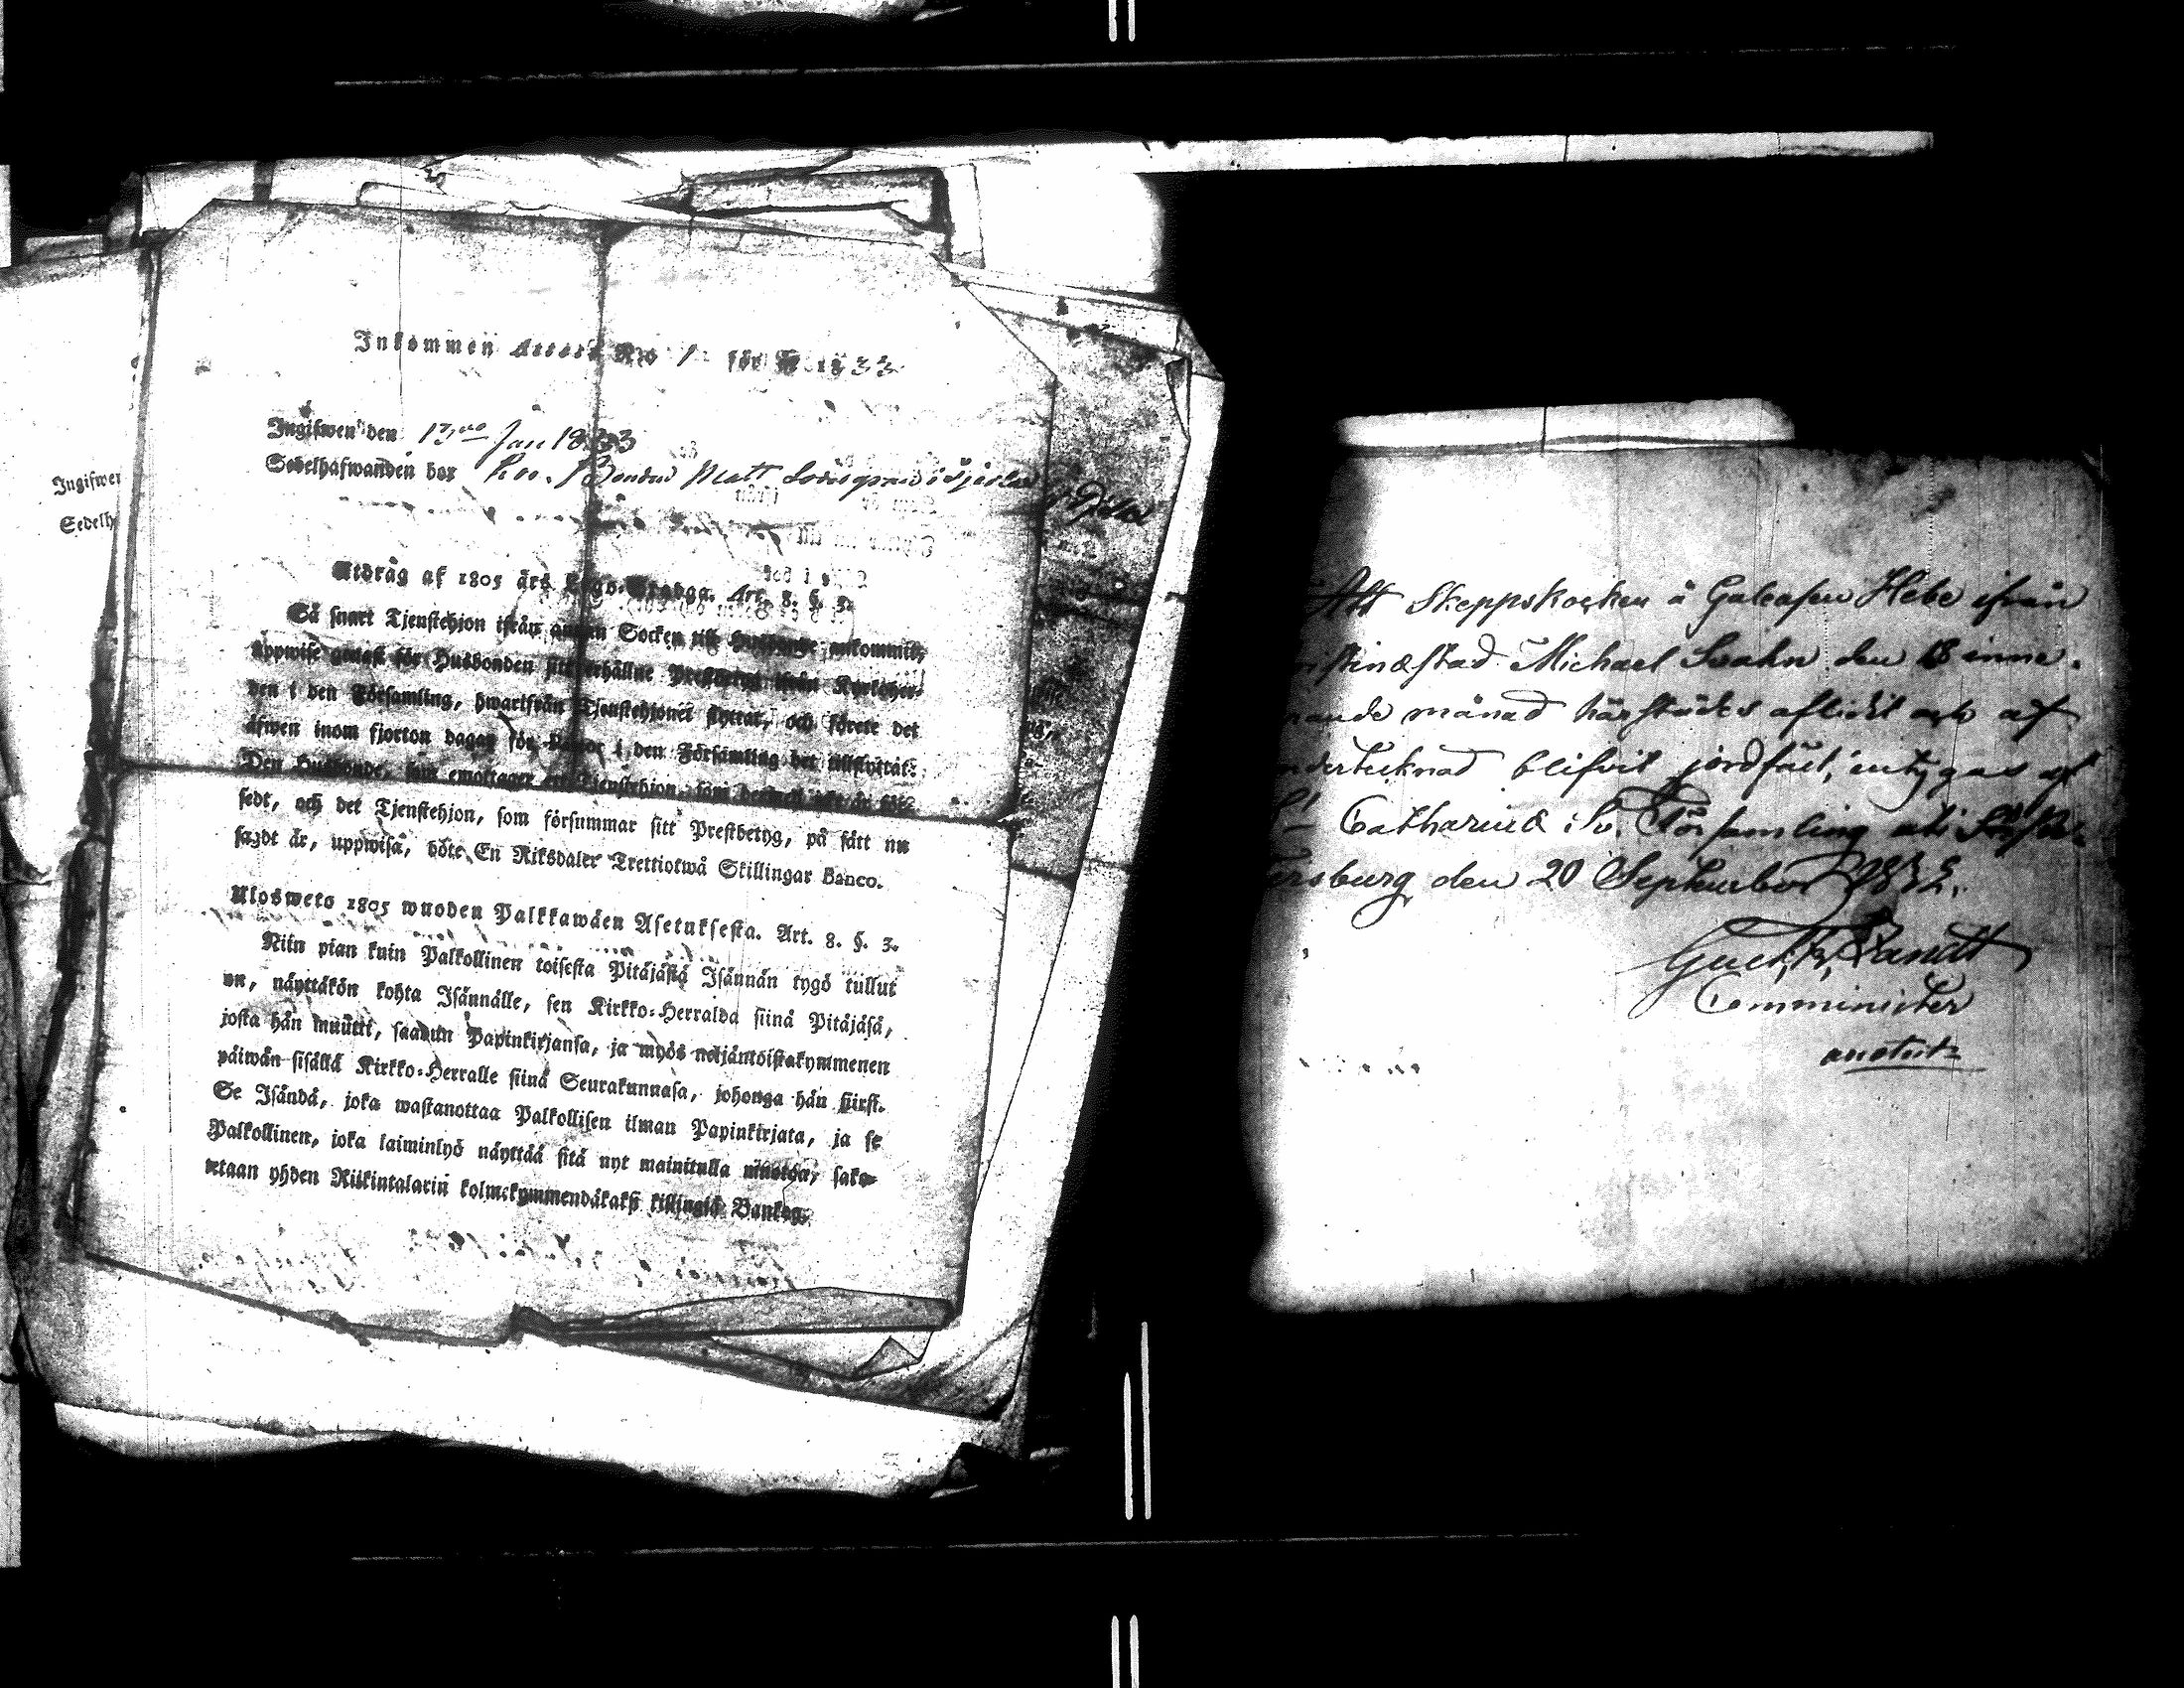 Inkommen Attest No 1 för År 1833
Ingifwen den 17 Jan 1833
Sedelhafwanden bor hos Bonden Matt
Utdrag af 1805 års Lego-Stadga. Art. 8. §. 3.
Så snart Tjenstehjon ifrån annan Socken till Husbonde ankommit,
uppwise genast för Husbonden sitt erhållne Prestbetyg ifrån Kyrkoher-
den i den Församling, hwarifrån Tjenstehjonet flyttat, och förete det
äfwen inom fjorton dagar för Pastor i den Församling det tillflyttat.
Den Husbonde, som emottager en Tjenstehjon, som dermed icke är för-
sedt, och det Tjenstehjon, som försummar sitt Prestbetyg, på sätt nu
sagdt är, uppwisa, böte En Riksdaler Trettiotwå Skillingar Banco.
Ulosweto 1805 wuoden Palkkawäen Asetuksesta. Art. 8. §. 3.
Niin pian kuin Palkollinen toisesta Pitäjästä Isännän tygö tullut
on, näyttäkön kohta Isännälle, sen Kirkko-Herralda siinä Pitäjäsä,
josta hän muutti, saadun Papinkirjansa, ja myös neljäntoistakymmenen
päiwän sisällä Kirkko-Herralle siinä Seurakunnasa, johonga hän siirsi.
Se Isändä, joka wastanottaa Palkollisen ilman Papinkirjata, ja se
Palkollinen, joka laiminlyö näyttää sitä nyt mainitulla muotoa, sako-
tetaan yhden Riikintalarin kolmekymmendäkaksi killingiä Bankog.
Ingifwen
Sedelh
Att Skeppskocken å Galeasen Hebe ifrån
ristinæstad Michael Svahn den 18 inne-
nande månad härstädes aflidit och af
ndertecknad blifvit jordfäst, intygas af
St Catharinæ Sv. Församling uti St Pe-
tersburg den 20 September 1832.
Gust. Fr. Zandt
Comminister